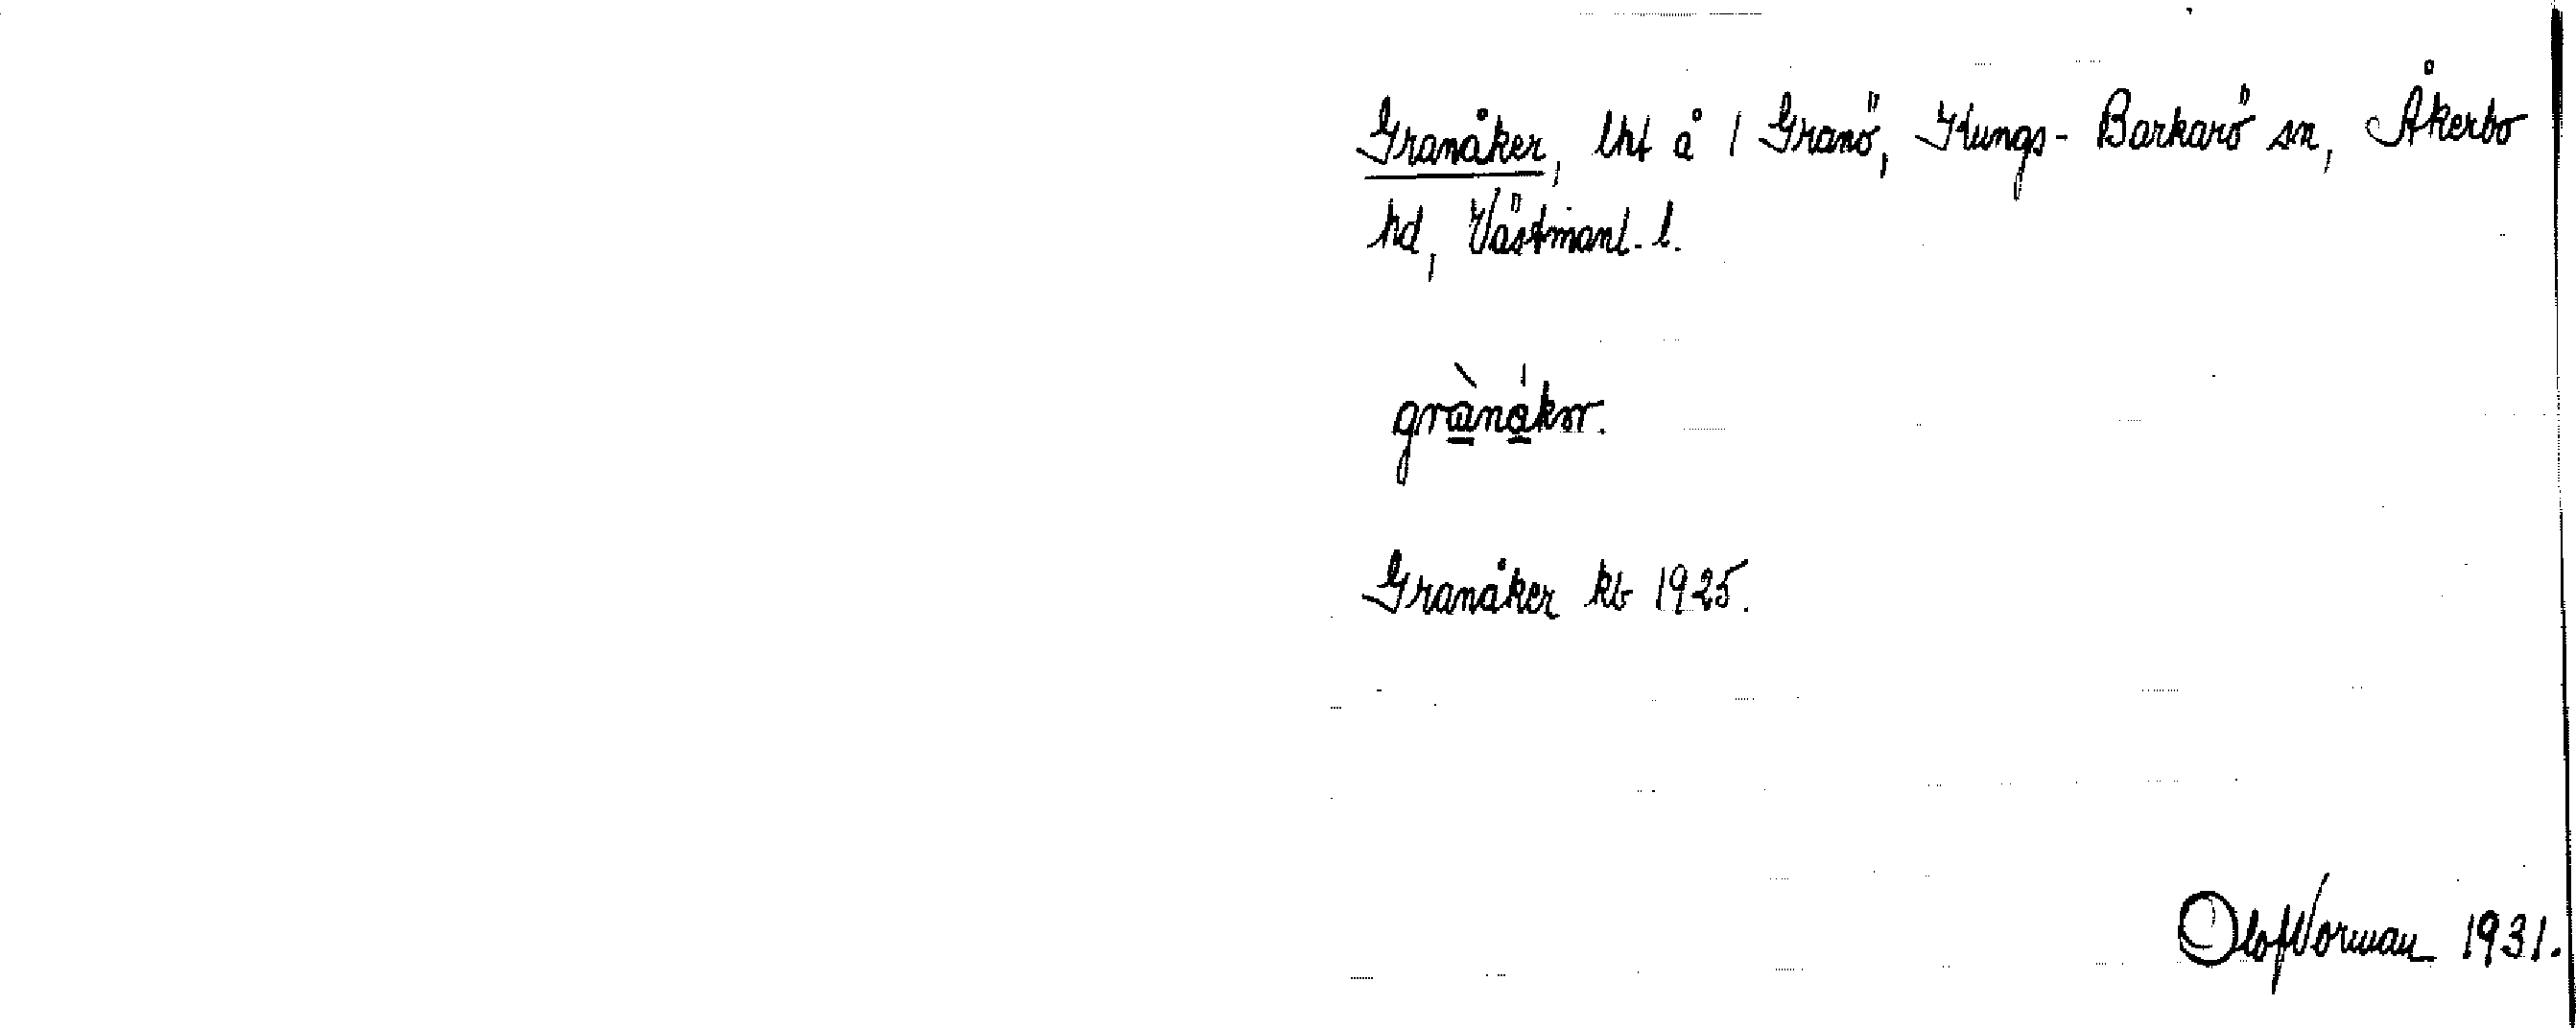 Granåker, lht å 1 Granö, Kungs-Barkarö sn, Åkerbo
hd, Västmanl. l.
grànákər.
Granåker kb 1925.
Olof Norman 1931.